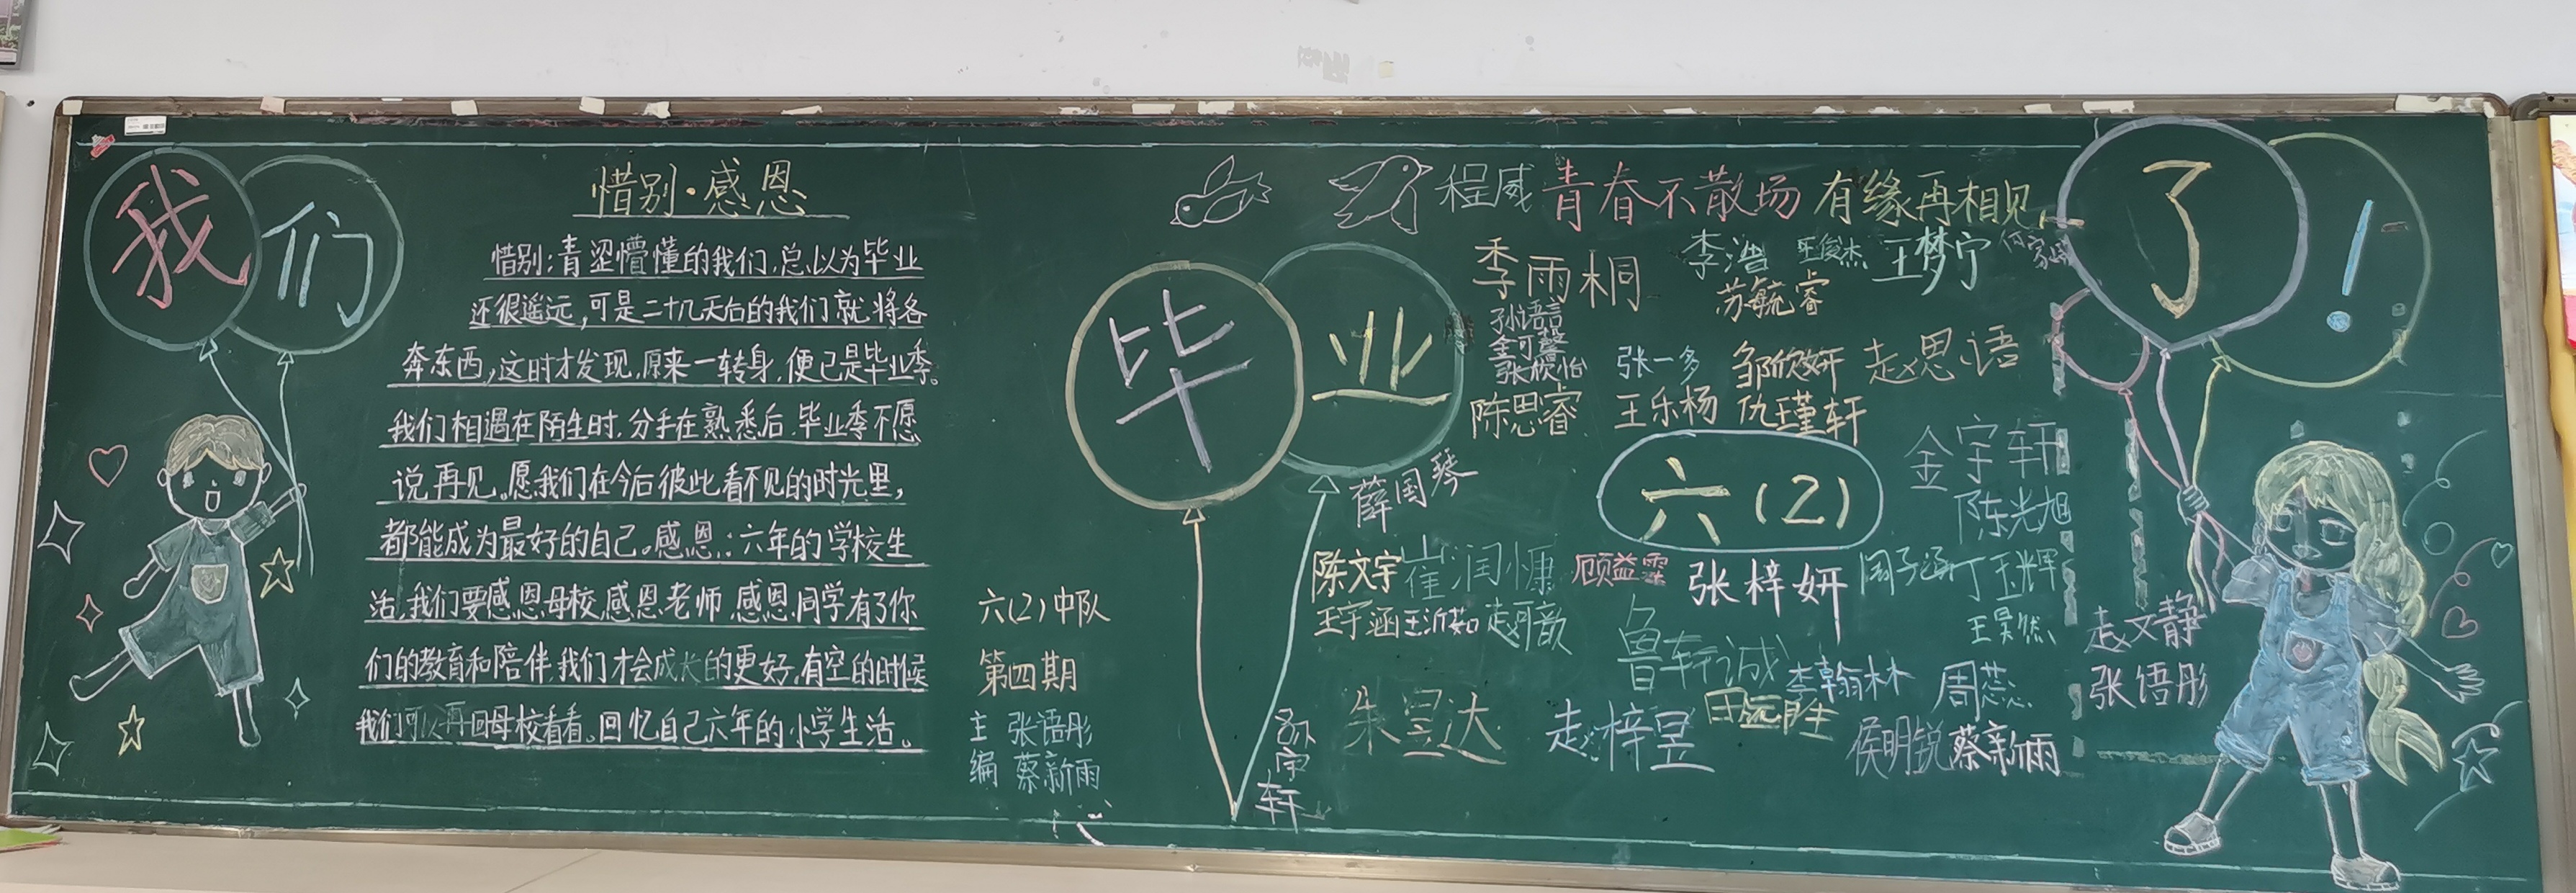 我们
惜别·感恩
惜别:青涩懵懂的我们,总以为毕业
还很遥远,可是二十几天后的我们就将各
奔东西,这时才发现,原来一转身,便已是毕业季。
我们相遇在陌生时,分手在熟悉后,毕业季不愿
说再见。愿我们在今后彼此看不见的时光里,
都能成为最好的自己。感恩:六年的学校生
活,我们要感恩母校,感恩老师,感恩同学有了你
们的教育和陪伴,我们才会成长的更好,有空的时候
我们可以再回母校看看。回忆自己六年的小学生活。
六(2)中队
第四期
主 张语彤
编 蔡新雨
毕业
程威 青春不散场 有缘再相见
季雨桐
李浩 王俊杰 王梦宁
苏毓睿
孙语言
金可馨
张欣怡
张一多 邹欣妍 赵思语
陈思睿 王乐杨 仇瑾轩
六(2)
金宇轩
陈光旭
薛国琴
陈文宇 崔润慷 顾益霖 张梓妍 周子涵 丁玉辉
王宇涵 王沂茹 赵可歆
鲁轩诚
王昊然
李翰林 周蕊
朱昱达 赵梓昱 侯明锐 蔡新雨
轩
赵文静
张语彤
了!